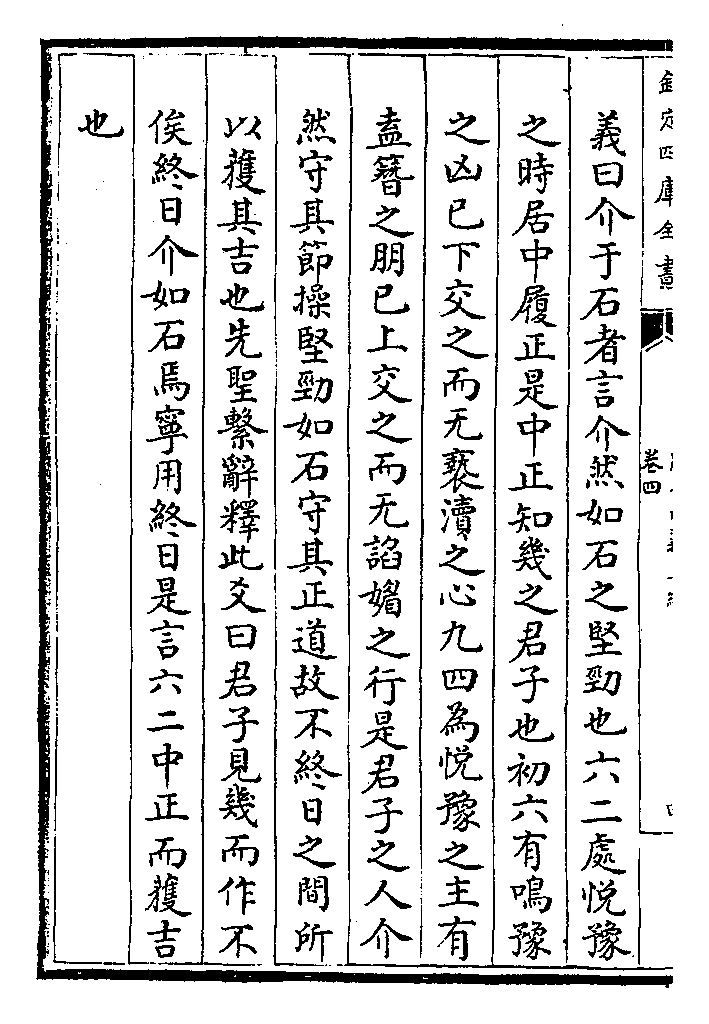 欽定四庫全書
卷四
義曰介于石者言介然如石之堅勁也六二處悅豫
之時居中履正是中正知幾之君子也初六有鳴豫
之凶已下交之而无褻瀆之心九四為悅豫之主有
盍簪之朋已上交之而无諂媚之行是君子之人介
然守其節操堅勁如石守其正道故不終日之間所
以獲其吉也先聖繫辭釋此爻曰君子見幾而作不
俟終日介如石焉寧用終日是言六二中正而獲吉
也